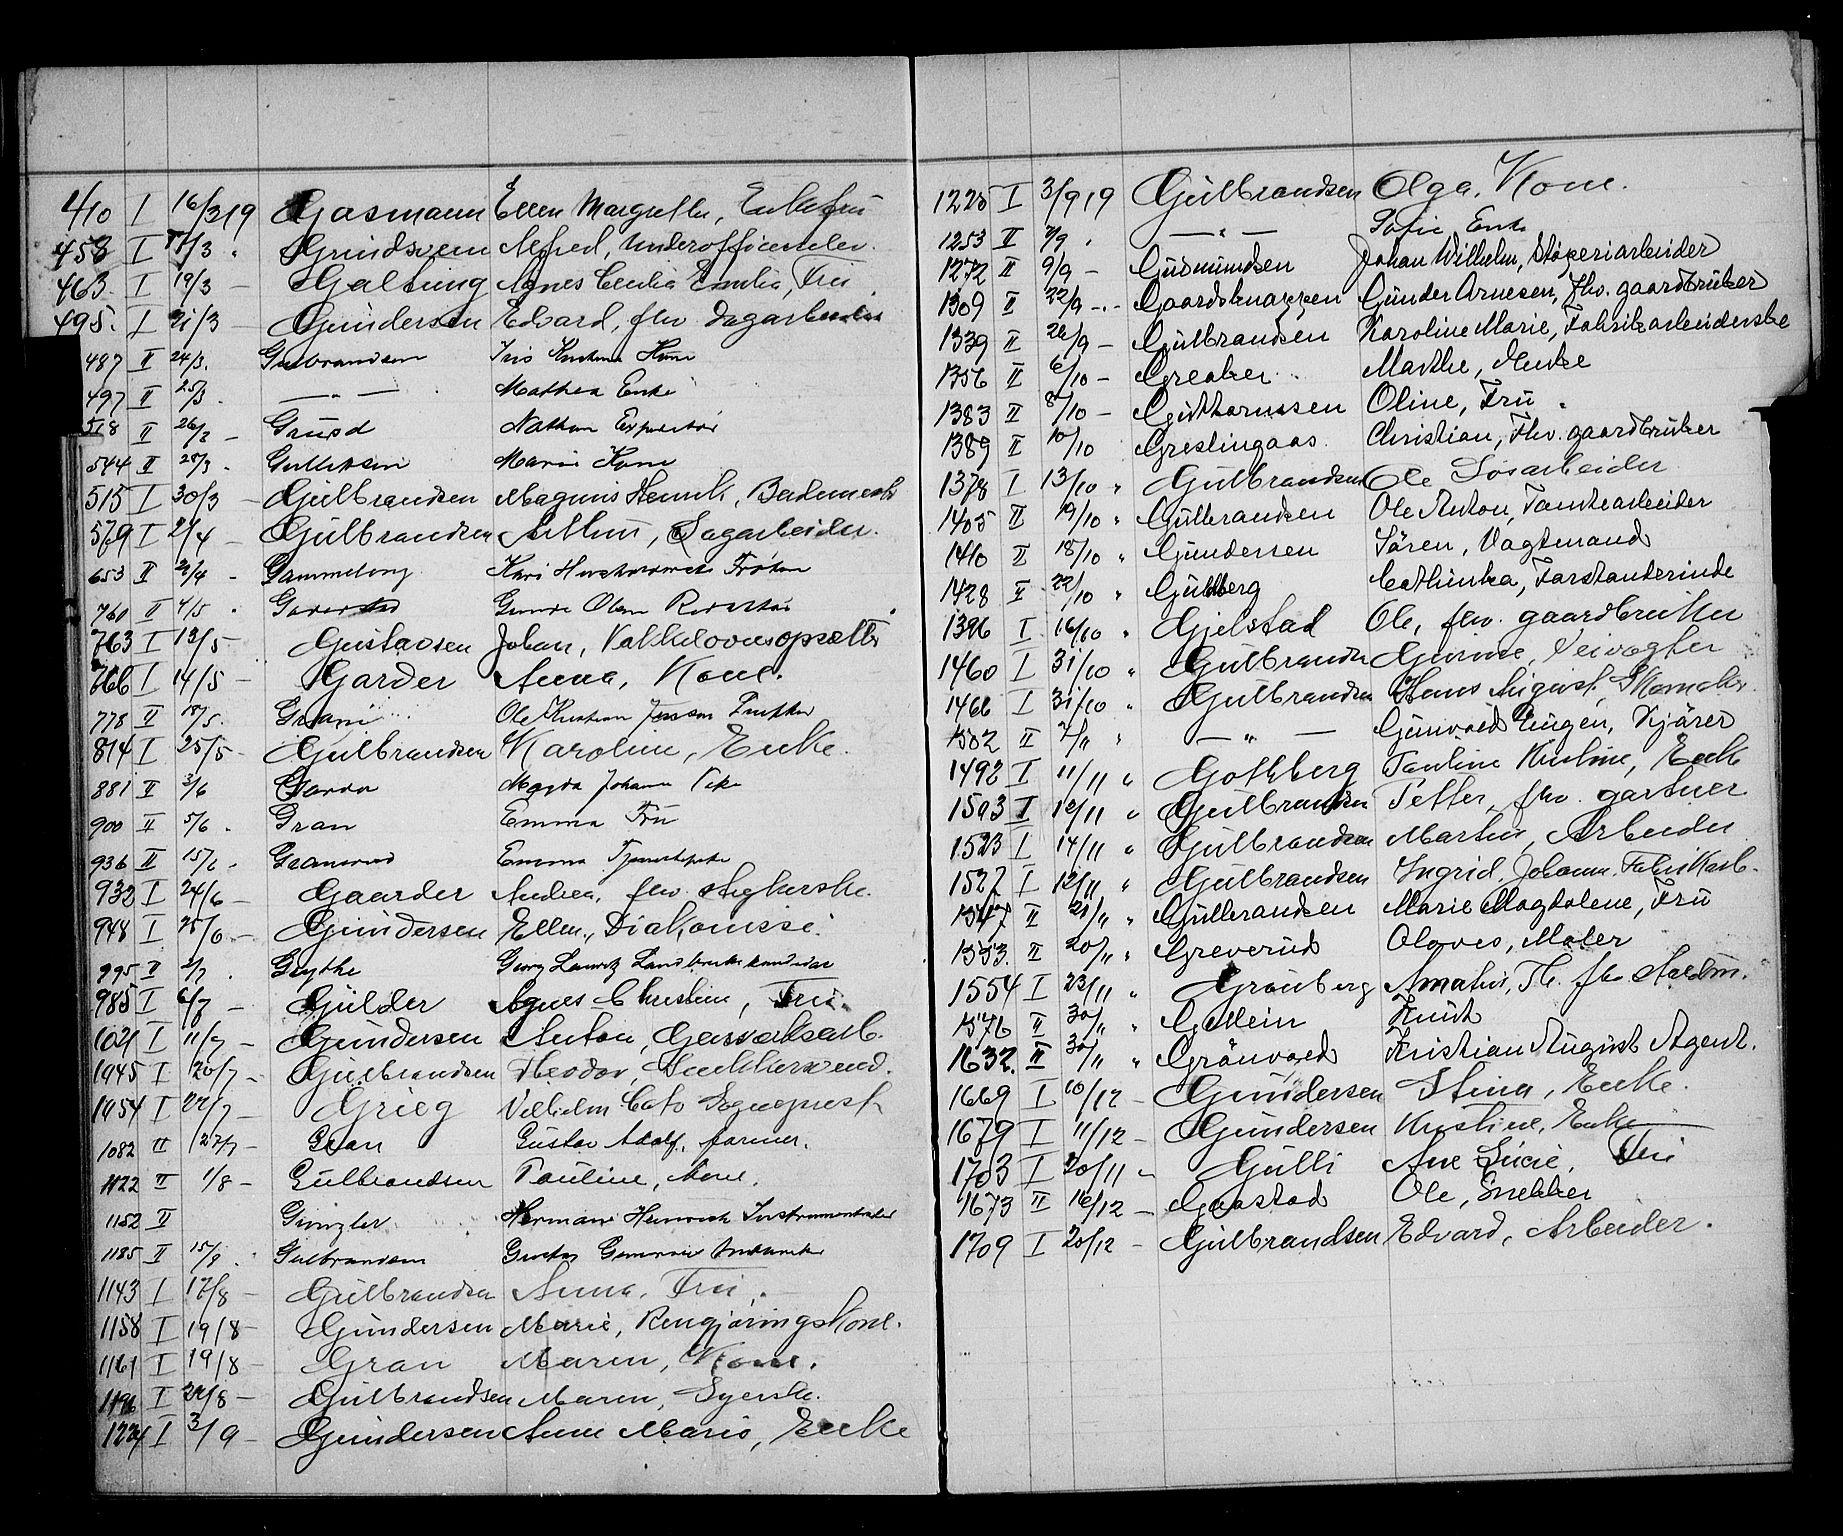 410 I 16/3 19 Gasmann Ellen Margrethe, Enkefru
458 I 17/3 " Grindsveen Alfred, Underofficerselev.
463 I 19/3 — Galtung Agnes Cecilia Emilia, Fru
495. I 21/3 — Gundersen Edvard, fhv dagarbeider
487 II 24/3. Gulbrandsen Kone
497 II 25/3 — " — Mathea Enke
518 II 26/3 — Nathan Expeditör
544 II 28/3 . Gulliksen Marie Kone
515 I 30/3 — Gulbrandsen Magnus Henrik, Bademester
579 I 2/4 — Gulbrandsen Arthur, Sagarbeider.
653 II 2/4 — Gammeleng Kari Frøken
760 II 4/5 . Gunda Olsen
763 I 13/5 — Gustavsen Johan,
766 I 14/5 — Garder Anna, Kone.
778 II 18/5. Ole Kristian
814 I 25/5 — Gulbrandsen Karoline, Enke.
881 II 3/6 Garder Magda Johanne Pike
900 II 5/6 . Gran Emma Fru
936 II 15/6 . Emma Tjenestepike
932 I 24/6 — Gaarder Andrea, fhv. sykerske.
948 I 25/6 — Gundersen Ellen, Diakonisse.
995 II 2/7 . Grythe Georg Lauritz Landbrukskandidat
985 I 6/7 — Gulder Agnes Christine, Fru.
1021 I 11/7 — Gundersen Anton, Gasverksarb.
1045 I 20/7 — Gulbrandsen Theodor, Snekkersvend.
1054 I 22/7 — Grieg Vilhelm Cato Sogneprest
1082 II 27/7 — Gran Gustav Adolf, farmer.
1122 II 1/8 — Gulbrandsen Pauline, Kone.
1152 II Ginzler Herman Heinrich Instrumentmaker
1185 II 15/8 . Gulbrandsen Gustav
1143 I 17/8 — Gulbrandsen Anna, Fru.
1158 I 19/8 — Gundersen Marie, Rengjøringskone.
1161 I 19/8 — Gran Maren, Kone.
1196 I 24/8 — Gulbrandsen Maren, Syerske.
1224 I 3/9 — Gundersen Anne Marie, Enke
1225 I 3/9 19 Gulbrandsen Olga, Kone.
1253 II 7/9 " — " — Sofie Enke
1272 II 9/9 — Gudmundsen Johan Wilhelm, Støperiarbeider
1309 II 22/9 — Gaardsknappen Gunder Arnesen, Fhv. gaardbruker
1339 II 26/9 — Gulbrandsen Karoline Marie, Fabrikarbeiderske
1356 II 6/10 — Greaker Marthe, Enke
1383 II 8/10 — Guttormssen Oline, Fru.
1389 II 10/10 Greslingaas. Christian, Fhv. gaardbruker
1378 I 13/10 " Gulbrandsen Ole Løsarbeider
1405 II 19/10 " Gulbrandsen Ole Anton, Tomtearbeider
1410 II 18/10 " Gundersen Sören, Vagtmand
1428 II 22/10 " Guldberg Cathinka, Forstanderinde
1396 I 16/10 " Gjelstad Ole, fhv. gaardbruker
1460 I 31/10 " Gulbrandsen Veivogter
1466 I 31/10 " Gulbrandsen Hans August, Skomaker.
1502 II 7/11 " — " — Gunvald Eugen, Kjörer
1492 I 11/11 " Gothberg Pauline Kristine, Enke
1503 I 12/11 " Gulbrandsen Petter, fhv. gartner
1523 I 14/11 " Gulbrandsen Martin, Arbeider
1527 I 12/11 " Gulbrandsen Ingrid, Johanne Fabrikarb.
1547 II 21/11 " Gulbrandsen Marie Magdalene, Fru
1553. II 20/11 " Greverud Olaves, Maler
1554 I 23/11 " Grønberg Amatus, Th. fhv
1576 II 30/11 " Gillein Knut
1632. II 30/11 " Grönvold Kristian August Agent.
1669 I 10/12 — Gundersen Stina, Enke.
1679 I 11/12 — Gundersen Kristine, Enke
1703 I 20/11 " Gulli Ane Lucie, Fru
1673 II 16/12 — Gaastad Ole, Snekker
1709 I 20/12 — Gulbrandsen Edvard, Arbeider.